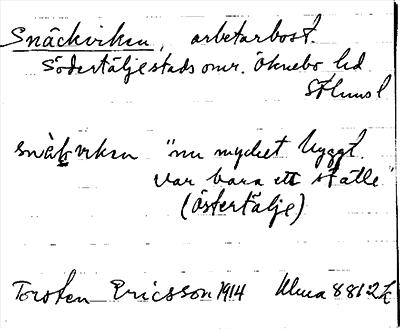 Snäckviken, arbetarbost.
Södertälje stads omr. Öknebo hd
Sthms l
snäkviken "nu mycket byggt.
var bara ett ställe"
(Östertälje)
Torsten Ericsson 1914 Ulma 8812